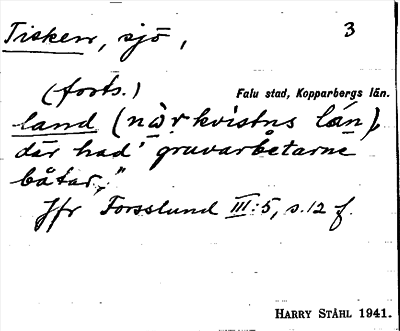 Tisken, sjö, 3
(forts.) Falu stad, Kopparbergs län.
land (när kvistns län),
där had' gruvarbetarne
båtar."
Jfr Forsslund III:5, s. 12 f.
HARRY STÅHL 1941.